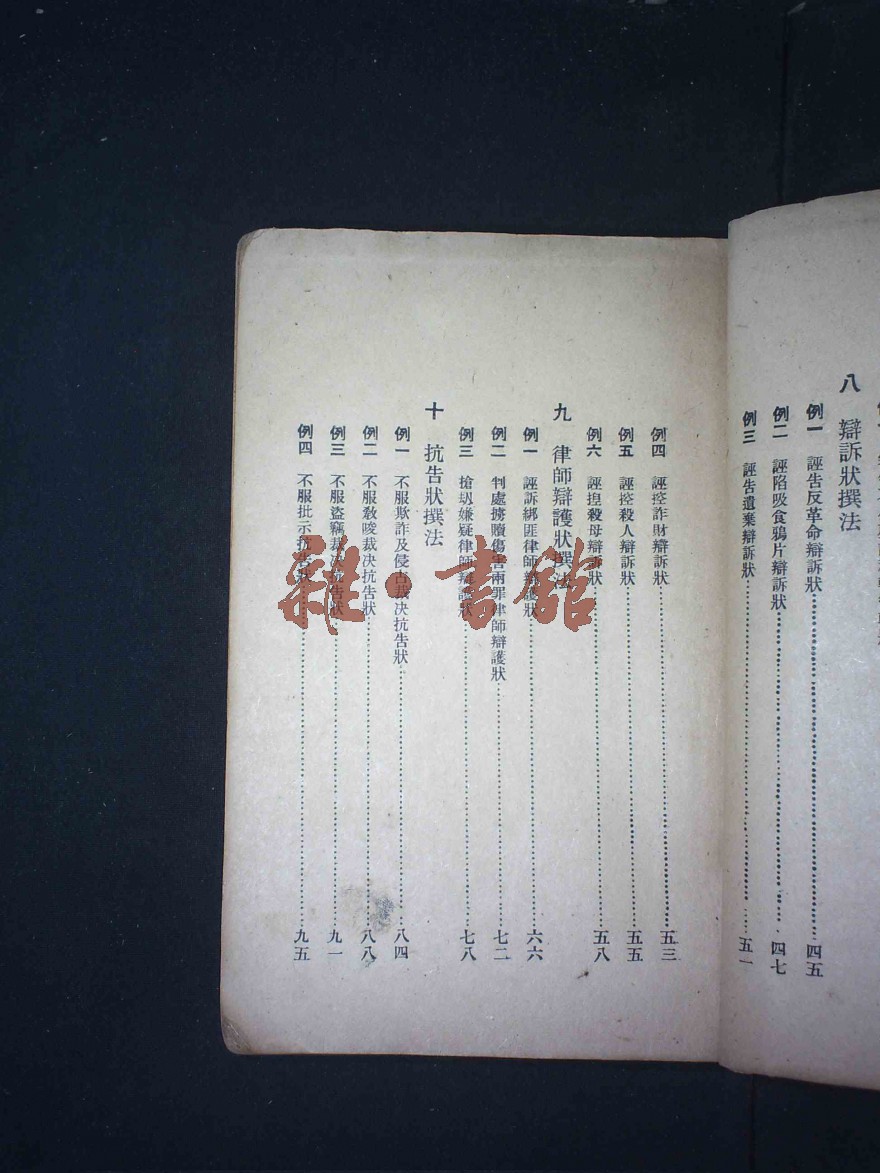 八　辯訴狀撰法
例一　誣告反革命辯訴狀……四五
例二　誣陷吸食鴉片辯訴狀……四七
例三　誣告遺棄辯訴狀……五一
例四　誣控詐財辯訴狀……五三
例五　誣控殺人辯訴狀……五五
例六　誣捏殺母辯訴狀……五八
九　律師辯護狀撰法
例一　誣訴綁匪律師辯護狀……六六
例二　判處擄贖傷害兩罪律師辯護狀……七二
例三　搶刼嫌疑律師辯護狀……七八
十　抗告狀撰法
例一　不服欺詐及侵占裁决抗告狀……八四
例二　不服敎唆裁决抗告狀……八八
例三　不服盜竊裁决抗告狀……九一
例四　不服批示抗告狀……九五
雜·書館